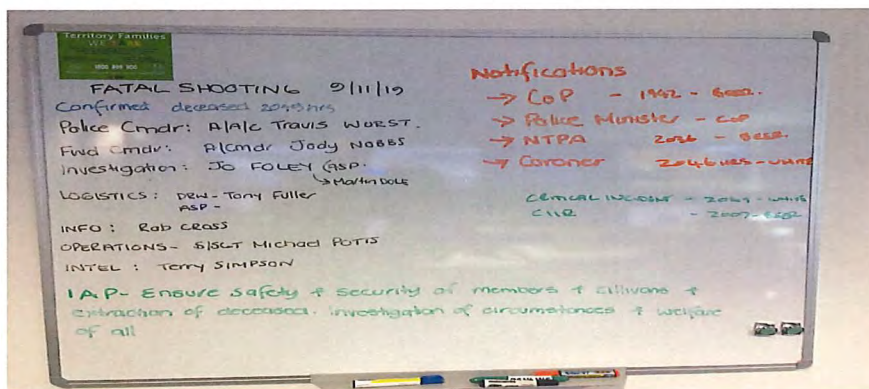 Territory Families
FATAL SHOOTING 9/11/19
Confirmed deceased 2049hrs
Police Cmdr: A/A/C Travis WURST.
Fwd Cmdr: A/Cmdr Jody NOBBS
Investigation: Jo FOLEY (ASP.
↳ Martin DOLE
LOGISTICS: DRW- Tony Fuller
ASP -
INFO: Rob CROSS
OPERATIONS- S/SGT Michael POTTS
INTEL: Terry SIMPSON
IAP- Ensure Safety + Security of members + cillivans +
extraction of deceased. investigation of circumstances + welfare
of all
Notifications
→ CoP - 1942 -
→ Police Minister - CoP
→ NTPA 2036 -
→ Coroner 2046HRS - WHITE
CRITICAL INCIDENT - - WHITE
CIIR - 2007 -